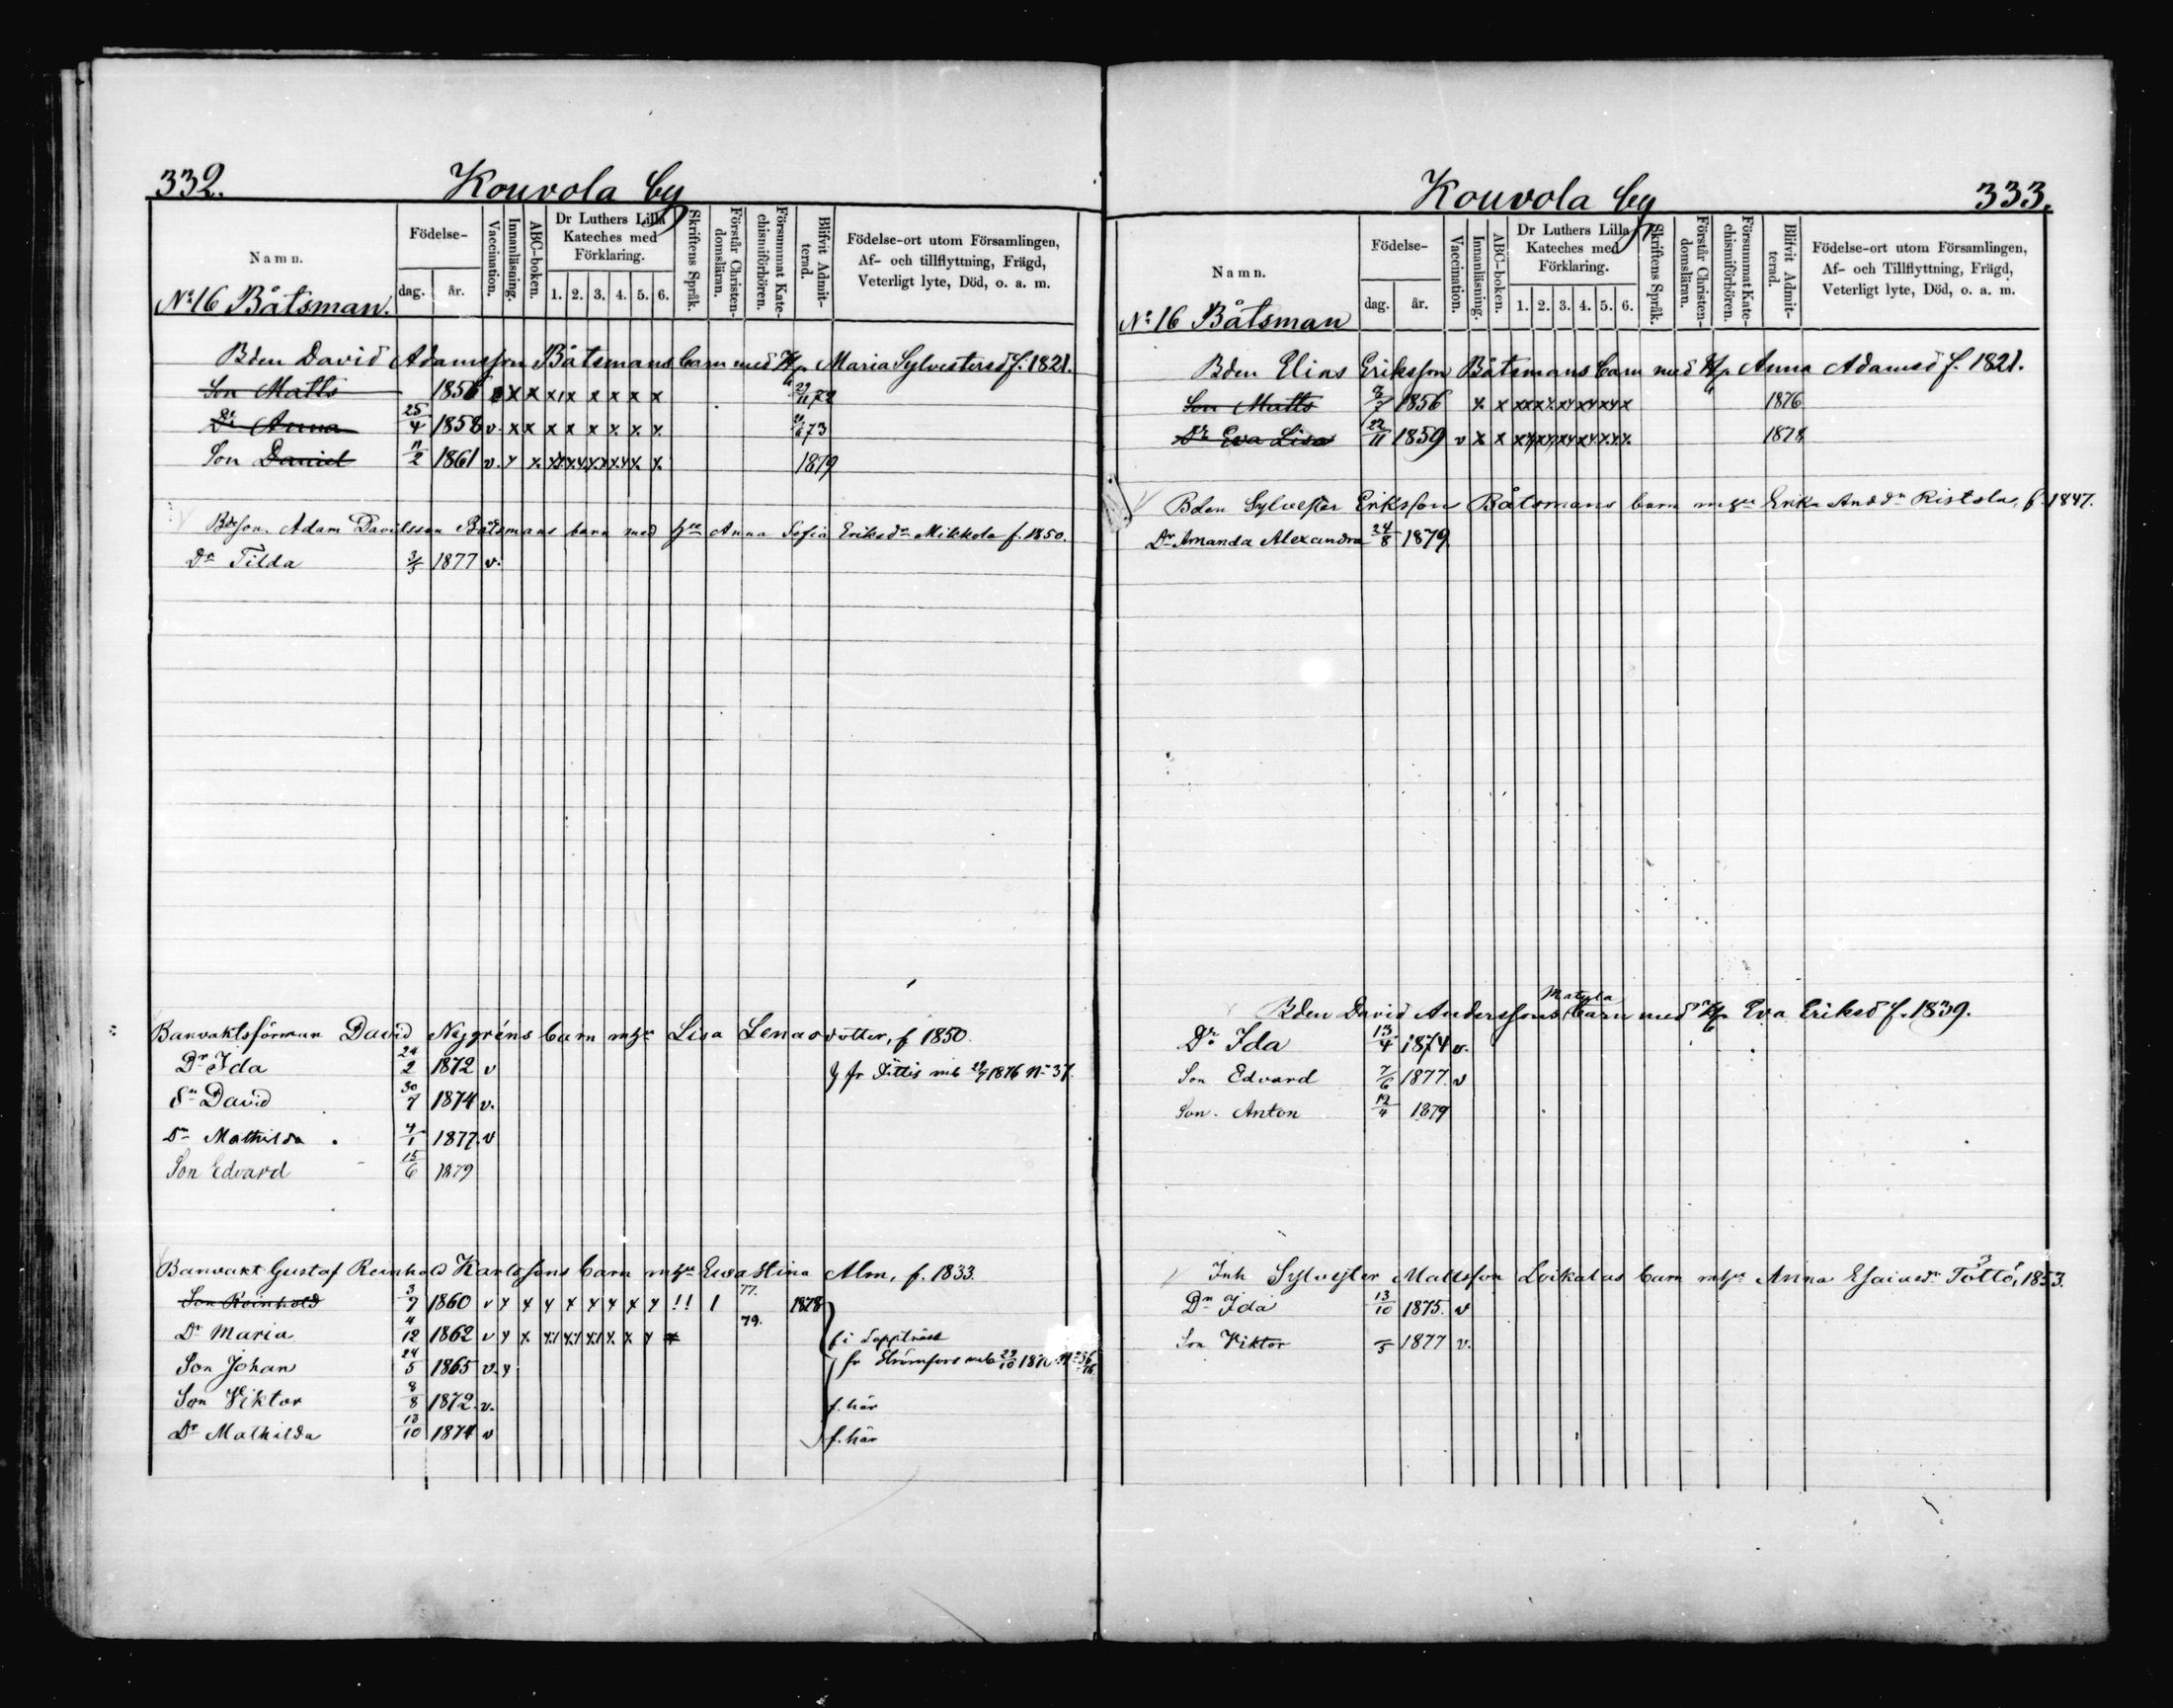 332. Kouvola by
Namn. Födelse- dag. år. Vaccination. Innanläsning. ABC-boken. Dr Luthers Lilla Kateches med Förklaring. 1. 2. 3. 4. 5. 6. Skriftens Språk. Förstår Christendomsläran. Försummat Katechismiförhören. Blifvit Admitterad. Födelse-ort utom Församlingen, Af- och tillflyttning, Frägd, Veterligt lyte, Död, o. a. m.
No 16 Båtsman.
Bden David Adamsson Båtsmans barn med H. Maria Sylvestersd f. 1821.
Son Matts 1856 x x x x x x x x 29/11 72
Dr Anna 25/4 1858 v. x x x x x x x x 73
Son Daniel 11/2 1861 v. x x x x x x x x 1879
Bdeson. Adam Davidsson Båtsmans barn med hu Anna Sofia Eriksdr Mikkola f. 1850.
Dr Tilda 3/5 1877 v.
Banvaktsförman David Nygréns barn m hu Lisa Lenasdotter, f 1850.
Dr Ida 24/2 1872 v fr Pittis mb 1876 No 37.
Sn David 30/7 1874 v.
Dr Mathilda 4/1 1877. v
Son Edvard 15/6 1879
Banvakt Gustaf Reinhold Karlssons barn m hu Eva Stina Alm, f. 1833.
Son Reinhold 3/7 1860 v x x x x x x x x !! 1 77. 1878
Dr Maria 4/12 1862 v x x x x x x x x 79. f i
Son Johan 24/5 1865 v. x fr Strömfors mb 29/10
Son Viktor 8/8 1872. v. f. här
Dr Mathilda 13/10 1874 v f. här
Kouvola by 333.
Namn. Födelse- dag. år. Vaccination. Innanläsning. ABC-boken. Dr Luthers Lilla Kateches med Förklaring. 1. 2. 3. 4. 5. 6. Skriftens Språk. Förstår Christendomsläran. Försummat Katechismiförhören. Blifvit Admitterad. Födelse-ort utom Församlingen, Af- och Tillflyttning, Frägd, Veterligt lyte, Död, o. a. m.
No 16 Båtsman
Bden Elias Eriksson Båtsmans barn med H. Anna Adamsd f. 1821.
Son Matts 1856 x x x x x x x x 1876
Dr Eva Lisa 22/11 1859 v x x x x x x x x 1878
Bden Sylvester Eriksson Båtsmans barn m hu Erika Anddr Ristola, f. 1847.
Dr Amanda Alexandra 24/8 1879
Matyla
Bden David Anderssons barn med H. Eva Eriksd f. 1839.
Dr Ida 13/4 1874 v.
Son Edvard 7/6 1877. v
Son. Anton 12/4 1879
Inh Sylvester Mattsson Loikalas barn m hu Anna Esaiasdr Töttö, 1853.
Dr Ida 13/10 1875. v
Son Viktor 1877 v.